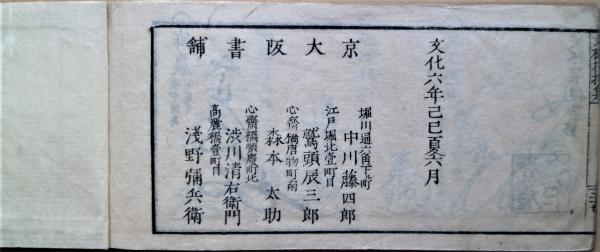 文化六年己巳夏六月
京
大
阪
書
舗
堀川通六角下ル町
中川藤四郎
江戸堀北壹町目
鷲頭辰三郎
心齋橋唐物町南
森本太助
心齋橋順慶町北
渋川清右衛門
高麗橋壹町目
淺野彌兵衛